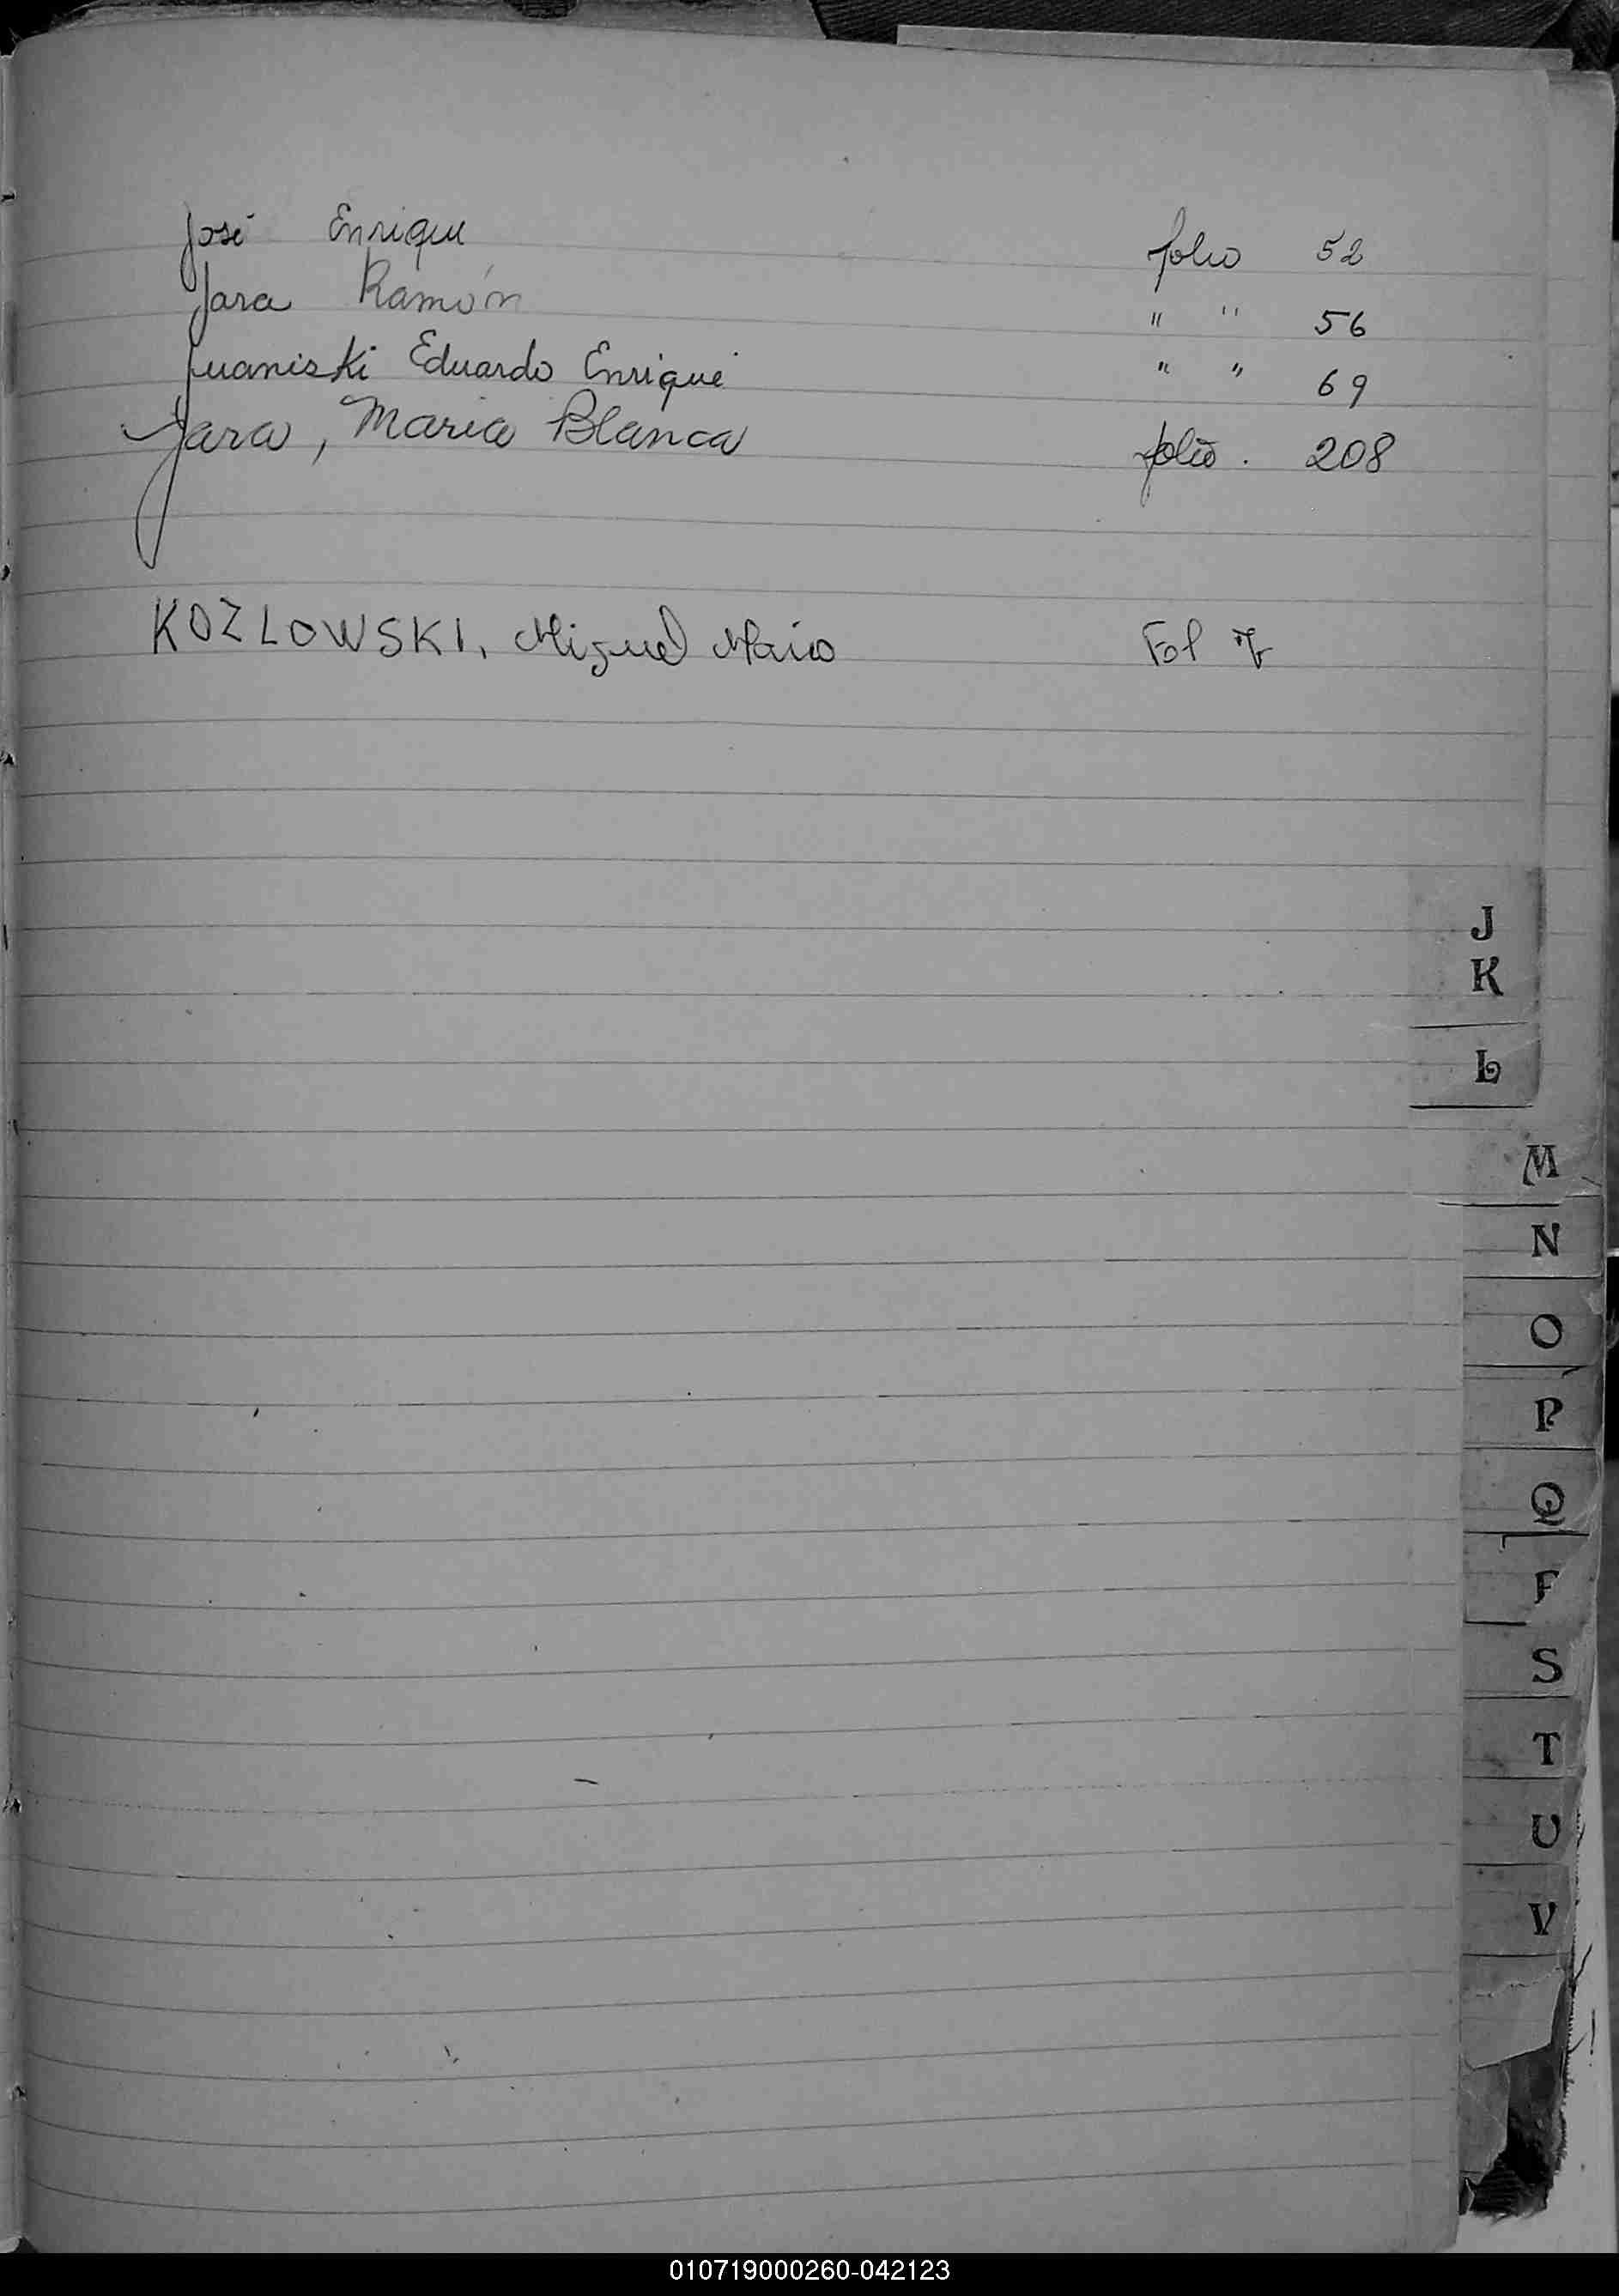 José Enrique folio 52
Jara Ramón " " 56
Juaniski Eduardo Enrique " " 69
Jara, Maria Blanca folio . 208
KOZLOWSKI, Miguel Mario Fol
J
K
L
M
N
O
P
Q
S
T
U
V
010719000260-042123